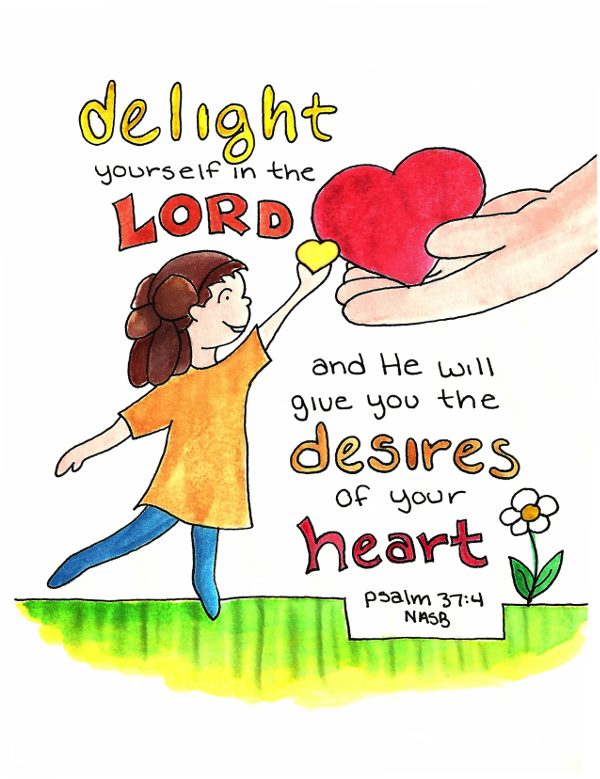 delight
yourself in the
LORD
and He will
give you the
desires
of your
heart
psalm 37:4
NASB